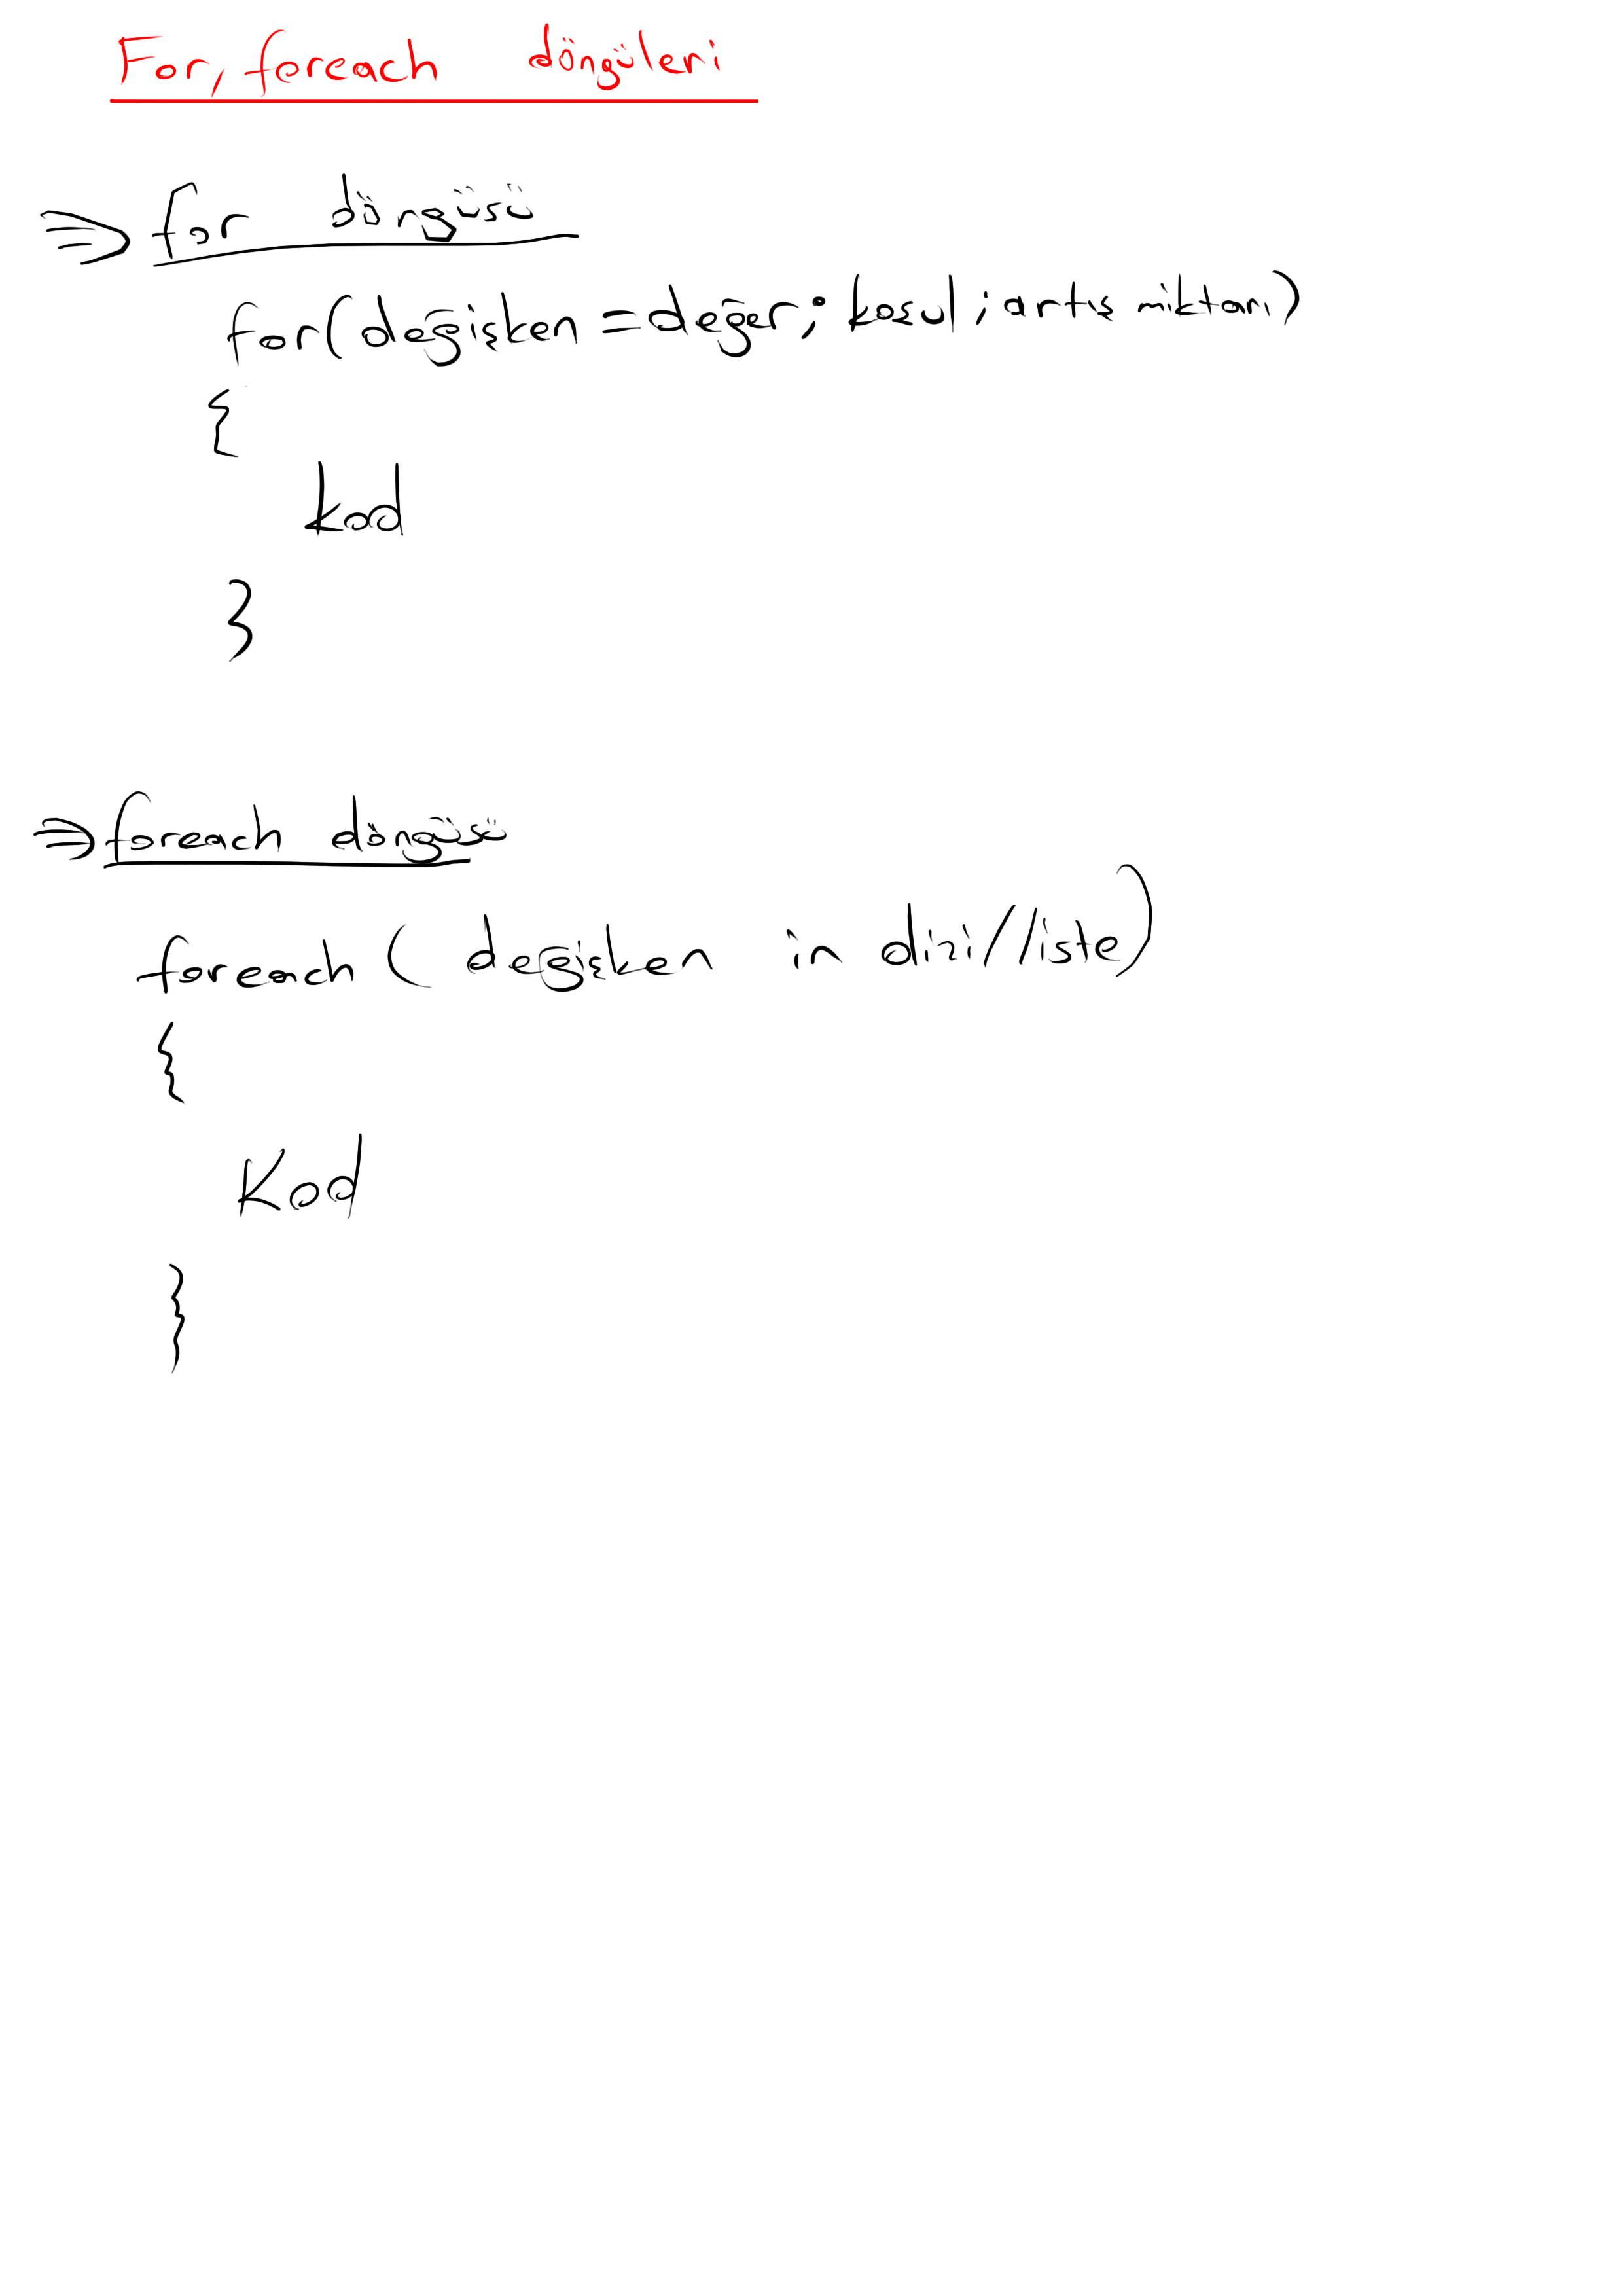 For, foreach döngüleri
⇒ for döngüsü
for(degisken = değer; kosul; artıs miktarı)
{
kod
}
⇒ foreach döngüsü
foreach ( degisken in dizi/liste)
{
Kod
}